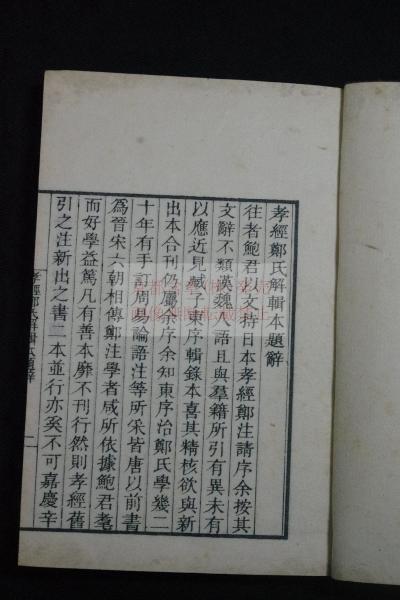 孝經鄭氏解輯本題辭
往者鮑君以文持日本孝經鄭注請序余按其
文辭不類漢魏人語且與羣籍所引有異未有
以應近見臧子東序輯錄本喜其精核欲與新
出本合刊仍屬余序余知東序治鄭氏學幾二
十年有手訂周易論語注等所采皆唐以前書
為晉宋六朝相傳鄭注學者咸所依據鮑君耄
而好學益篤凡有善本靡不刊行然則孝經舊
引之注新出之書二本並行亦奚不可嘉慶辛
孝經鄭氏解輯本題辭
一